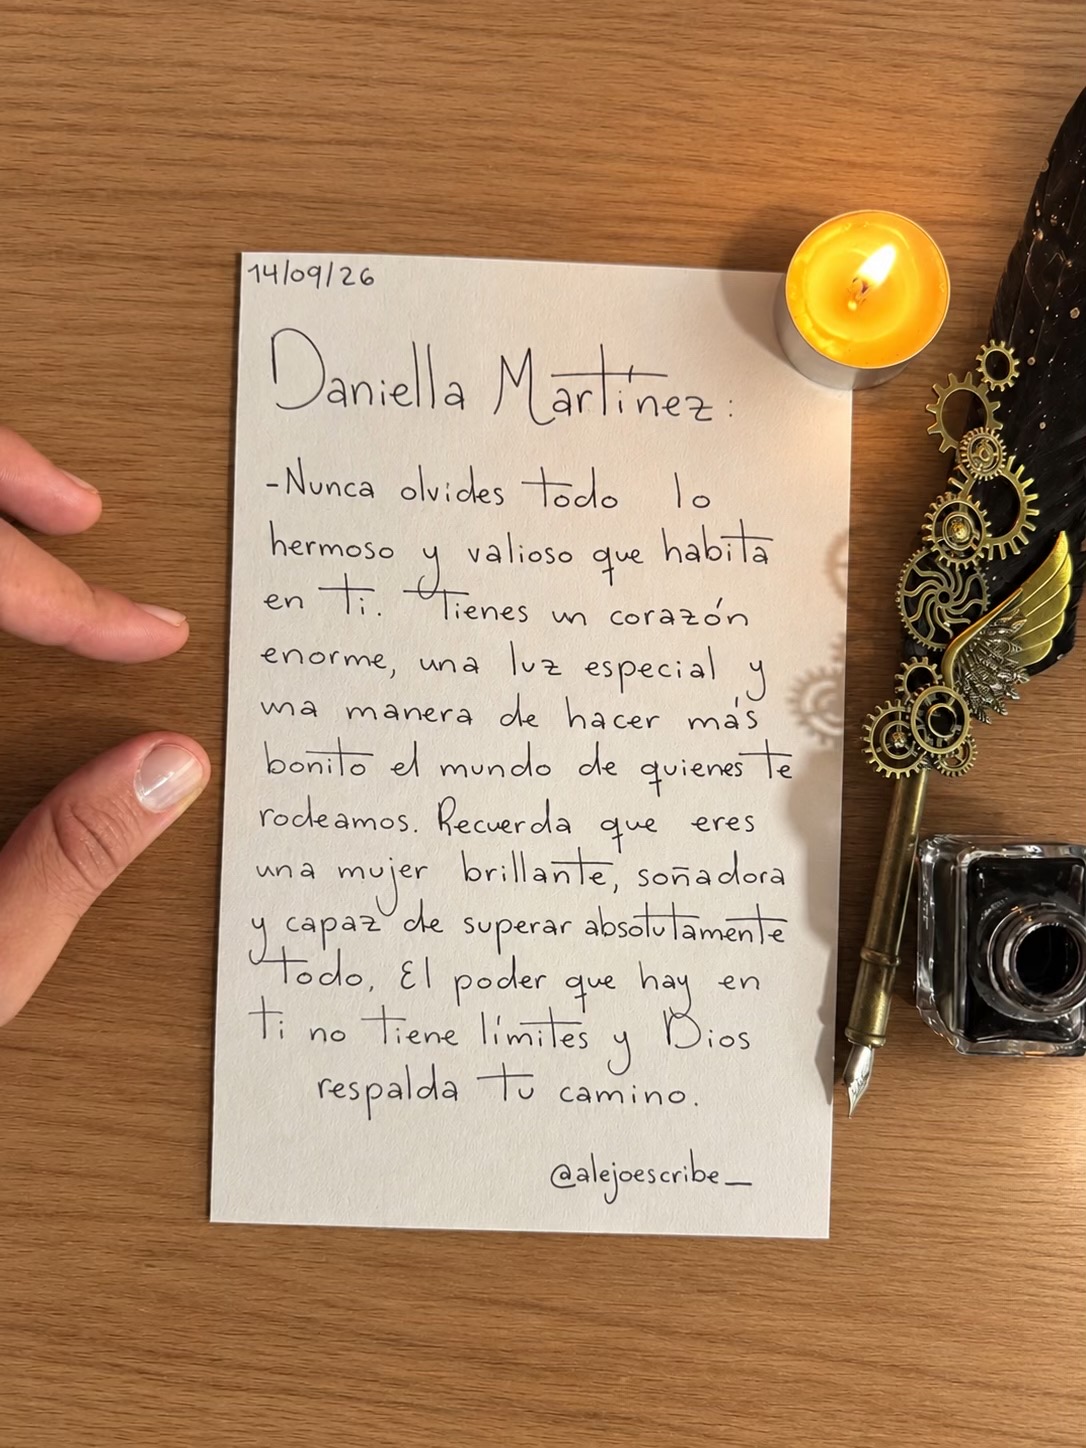 14/09/26
Daniella Martínez:
-Nunca olvides todo lo
hermoso y valioso que habita
en ti. Tienes un corazón
enorme, una luz especial y
una manera de hacer más
bonito el mundo de quienes te
rodeamos. Recuerda que eres
una mujer brillante, soñadora
y capaz de superar absolutamente
todo, El poder que hay en
ti no tiene límites y Dios
respalda tu camino.
@alejoescribe_